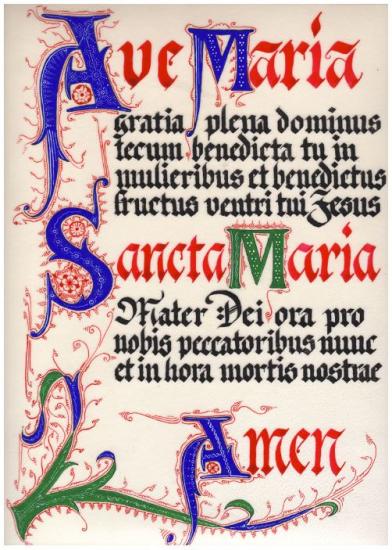 Ave Maria
gratia plena dominus
tecum benedicta tu in
mulieribus et benedictus
fructus ventri tui Jesus
Sancta Maria
Mater Dei ora pro
nobis peccatoribus nunc
et in hora mortis nostrae
Amen